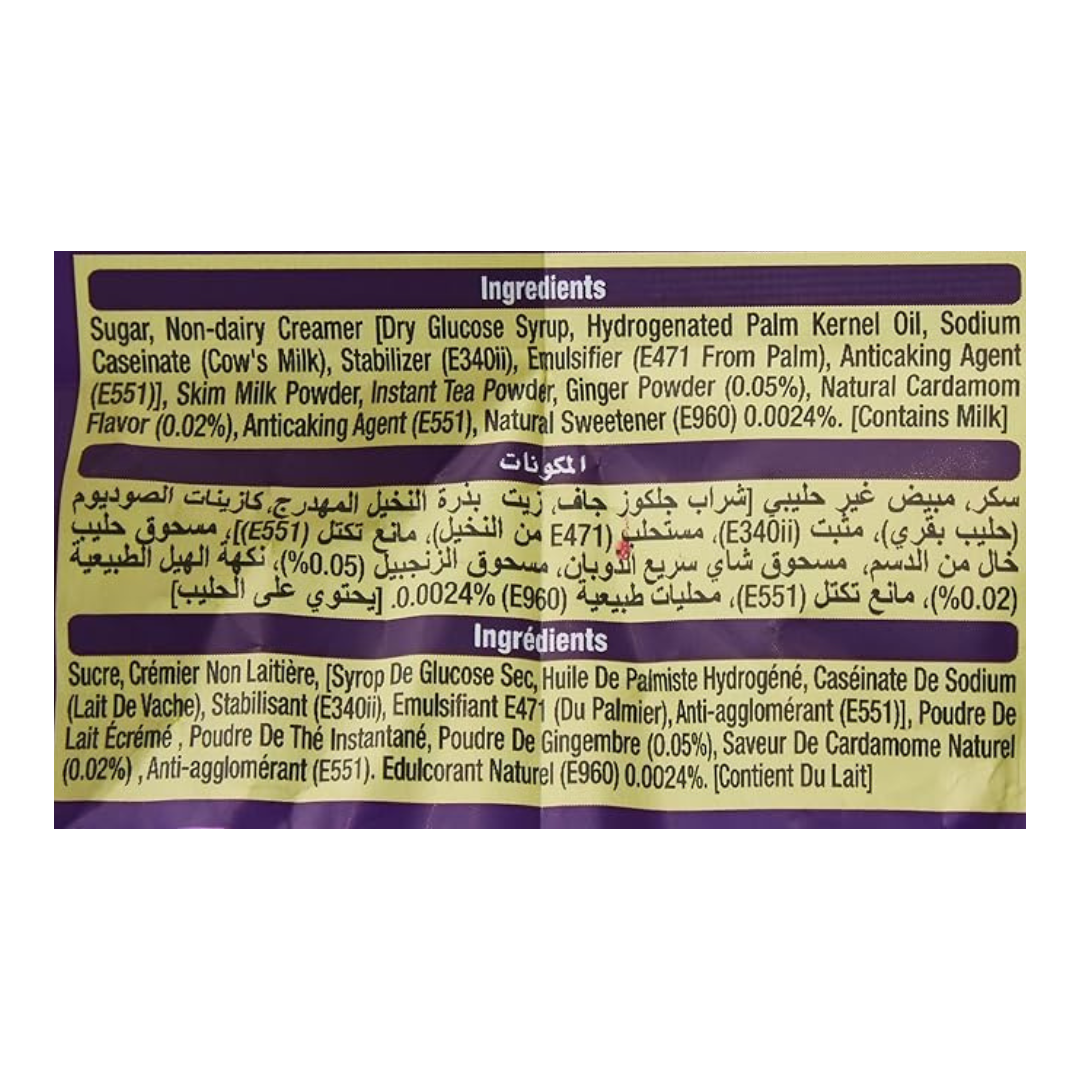 Ingredients
Sugar, Non-dairy Creamer [Dry Glucose Syrup, Hydrogenated Palm Kernel Oil, Sodium
Caseinate (Cow's Milk), Stabilizer (E340ii), Emulsifier (E471 From Palm), Anticaking Agent
(E551)], Skim Milk Powder, Instant Tea Powder, Ginger Powder (0.05%), Natural Cardamom
Flavor (0.02%), Anticaking Agent (E551), Natural Sweetener (E960) 0.0024%. [Contains Milk]
المكونات
سكر، مبيض غير حليبي [شراب جلكوز جاف، زيت بذرة النخيل المهدرج، كازينات الصوديوم
(حليب بقري)، مثبت (E340ii)، مستحلب (E471 من النخيل)، مانع تكتل (E551)]، مسحوق حليب
خال من الدسم، مسحوق شاي سريع الذوبان، مسحوق الزنجبيل (0.05%)، نكهة الهيل الطبيعية
(0.02%)، مانع تكتل (E551)، محليات طبيعية (E960) 0.0024%. [يحتوي على الحليب]
Ingrédients
Sucre, Crémier Non Laitière, [Syrop De Glucose Sec, Huile De Palmiste Hydrogéné, Caséinate De Sodium
(Lait De Vache), Stabilisant (E340ii), Emulsifiant E471 (Du Palmier), Anti-agglomérant (E551)], Poudre De
Lait Écrémé , Poudre De Thé Instantané, Poudre De Gingembre (0.05%), Saveur De Cardamome Naturel
(0.02%) , Anti-agglomérant (E551). Edulcorant Naturel (E960) 0.0024%. [Contient Du Lait]